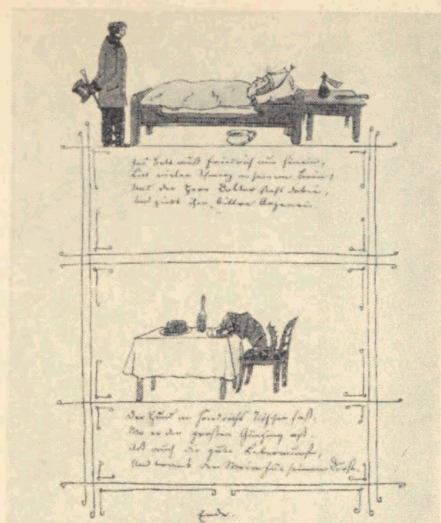 Ins Bett muß Friedrich nun hinein,
Litt vielen Schmerz an seinem Bein;
Und der Herr Doktor steht dabei,
Und giebt ihm bittre Arzenei.
Der Hund an Friedrichs Tischchen saß,
Wo er den großen aß,
Aß auch die gute Leberwurst,
Und trank den Wein für seinen Durst.
Ende.